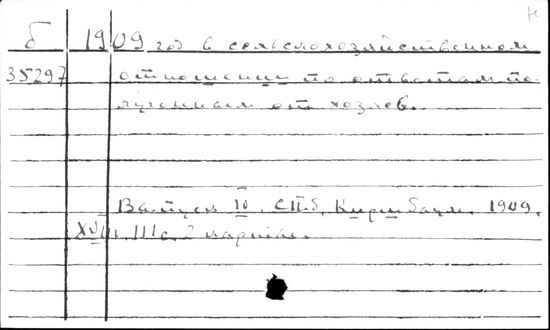 б 1909 год в сельскохозяйственном
35297 отношении по ответам по-
лученным от хозяев.
Выпуск IV. СПб, Киршбаум. 1909.
XVIII, 111 с. 2 карты.